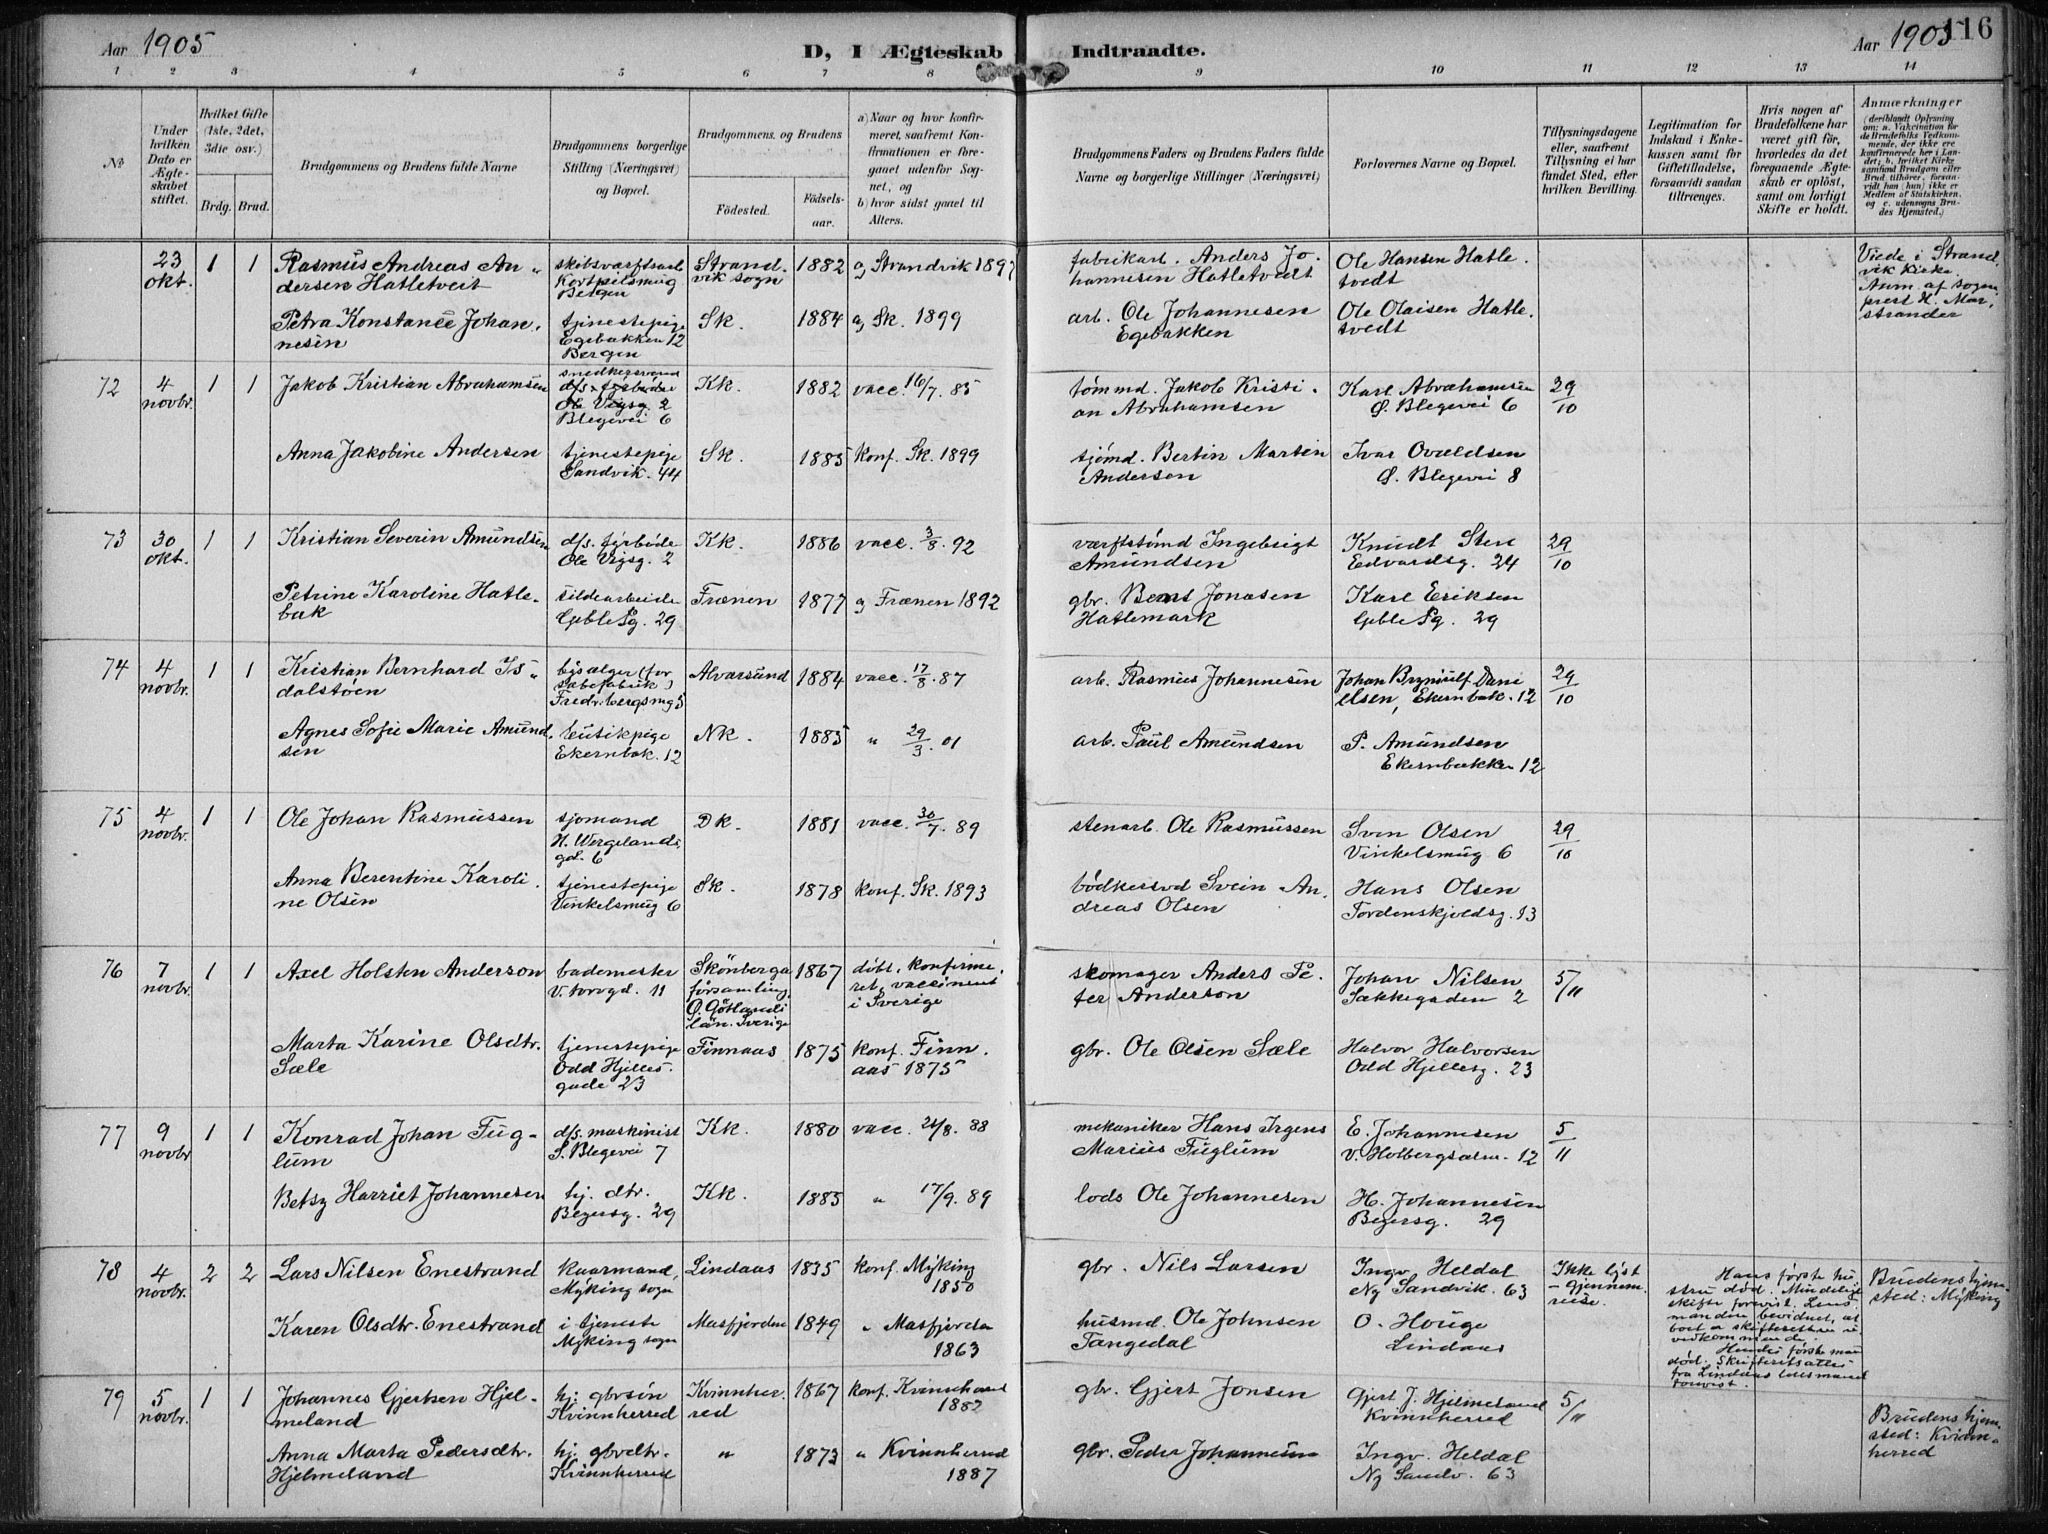 Aar 1905
D, I Ægteskab Indtraadte.
Aar 1905
116
1 2 3 4 5 6 7 8 9 10 11 12 13 14
№
Under hvilken Dato er Ægteskabet stiftet.
Hvilket Gifte (1ste, 2det, 3die osv.)
Brdg. Brud.
Brudgommens og Brudens fulde Navne
Brudgommens borgerlige Stilling (Næringsvei) og Bopæl.
Brudgommens, og Brudens
Fødested.
Fødsels-aar.
a) Naar og hvor konfirmeret, saafremt Konfirmationen er foregaaet udenfor Sognet, og
b) hvor sidst gaaet til Alters.
Brudgommens Faders og Brudens Faders fulde Navne og borgerlige Stillinger (Næringsvei)
Forlovernes Navne og Bopæl.
Tillysningsdagene eller, saafremt Tillysning ei har fundet Sted, efter hvilken Bevilling.
Legitimation for Indskud i Enkekassen samt for Giftetilladelse, forsaavidt saadan tiltrænges.
Hvis nogen af Brudefolkene har været gift før, hvorledes da det foregaaende Ægteskab er opløst, samt om lovligt Skifte er holdt.
Anmærkninger (deriblandt Oplysning om: a. Vakcination for de Brudefolks Vedkommende, der ikke ere konfirmerede her i Landet; b. hvilket Kirkesamfund Brudgom eller Brud tilhører, forsaavidt han (hun) ikke er Medlem af Statskirken, og c. udensogns Brudes Hjemsted.)
23 okt. 1 1
Rasmus Andreas Andersen Hatletveit
skibsværftsarb Bergen
Strandvik sogn 1882 a) Strandvik 1897
fabrikarb. Anders Johannesen Hatletvedt
Ole Hansen Hatletvedt
Viede i Strandvik Kirke. Anm. af sogneprest H. Marstrander
Petra Konstance Johannesen
tjenestepige Egebakken 12 Bergen
Sk. 1884 a) Sk. 1899
arb. Ole Johannesen Egebakken
Ole Olaisen Hatletvedt
72 4 novbr. 1 1
Jakob Kristian Abrahamsen
snedkersvend Ole Vigsg. 2 Blegevei 6
Kk. 1882 vacc. 16/7. 85
tømmd. Jakob Kristian Abrahamsen
Karl Abrahamsen Ø. Blegevei 6
29/10
Anna Jakobine Andersen
tjenestepige Sandvik. 44
Sk. 1885 konf. Sk. 1899
sjømd. Bertin Martin Andersen
Ivar Ovaldsen Ø. Blegevei 8
73 30 okt. 1 1
Kristian Severin Amundsen
d/s. fyrbøder Ole Vigsg. 2
Kk. 1886 vacc. 3/8. 92
værftstømd Ingebrigt Amundsen
Knudt Sten Edvardsg. 24
29/10
Petrine Karoline Hatlebak
sildearbeide Geble Pg. 29
Frænen 1877 a) Frænen 1892
gbr. Bernt Jonasen Hatlemark
Karl Eriksen Geble Pg. 29
74 4 novbr. 1 1
Kristian Bernhard Isdalstøen
bysælger (for sæbefabrik) Fredr.bergsmg 5
Alvarsund 1884 vacc. 17/8. 87
arb. Rasmus Johannesen
Johan Bryniulf Danielsen, Ekernbak. 12
29/10
Agnes Sofie Marie Amundsen
butikpige Ekernbak. 12
Nk. 1885 " 29/3. 01
arb. Paul Amundsen
P. Amundsen Ekernbakken 12
75 4 novbr. 1 1
Ole Johan Rasmussen
sjømand H. Wergelands gd. 6
Dk. 1881 vacc. 30/7. 89
stenarb. Ole Rasmussen
Sven Olsen Vinkelsmug 6
29/10
Anna Berentine Karoline Olsen
tjenestepige Vinkelsmug 6
Sk. 1878 konf. Sk. 1893
bødkersvd Svein Andreas Olsen
Hans Olsen Tordenskjoldsg. 13
76 7 novbr. 1 1
Axel Holsten Anderson
bademester V. torvgd. 11
Skönberga församling, Ö. Götlands län. Sverige 1867 døbt, konfirmeret, vaccineret i Sverige
skomager Anders Peter Anderson
Johan Nilsen Sækkegaden 2
5/11
Marta Karine Olsdtr. Sæle
tjenestepige Odd Hjelles gade 23
Finnaas 1875 konf. Finnaas 1875
gbr. Ole Olsen Sæle
Halvor Halvorsen Odd Hjellesg. 23
77 9 novbr 1 1
Konrad Johan Fuglum
d/s. maskinist S. Blegevei 7
Kk. 1880 vacc. 21/8. 88
mekaniker Hans Irgens Marius Fuglum
E. Johannesen v. Holbergsalm. 12
5/11
Betsy Harriet Johannesen
hj. dtr. Beyersg. 29
Kk. 1885 " 17/9. 89
lods Ole Johannesen
H. Johannesen Beyersg. 29
78 4 novbr. 2 2
Lars Nilsen Enestrand
kaarmand, Myking sogn
Lindaas 1835 konf. Myking 1850
gbr. Nils Larsen
Ingv. Heldal Ny Sandvik. 63
Ikke lyst – Gjennemreise.
Hans første hustru død. Mindelig skifte forevist. Lensmanden bevidnet, at boet er skifteretten uvedkommende. Hendes første man død. Skifteretsattest fra Lindaas lensmand forevist.
Brudens hjemsted: Myking
Karen Olsdtr. Enestrand
i tjeneste Myking sogn
Masfjorden 1849 " Masfjorden 1863
husmd. Ole Johnsen Tangedal
O. Houge Lindaas
79 5 novbr. 1 1
Johannes Gjertsen Hjelmeland
hj. gbrsøn Kvinnherred
Kvinnherred 1867 konf. Kvinnherred 1882
gbr. Gjert Jonsen
Gjert J. Hjelmeland Kvinnherred
5/11
Brudens hjemsted: Kvinnherred
Anna Marta Pedersdtr. Hjelmeland
hj. gbrdtr. Kvinnherred
" 1873 " Kvinnherred 1887
gbr. Peder Johannesen
Ingv. Heldal Ny Sandv. 63